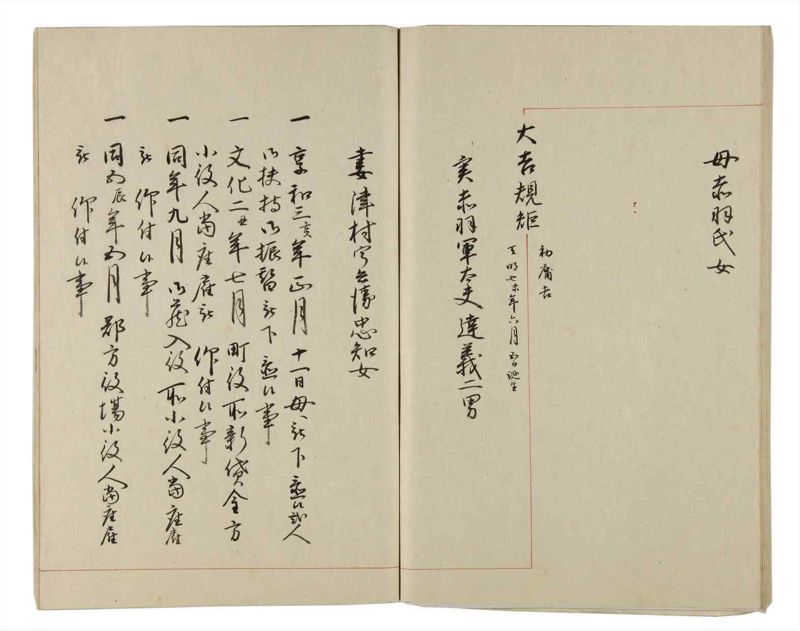 母赤羽氏女
大吉規矩
初庸吉
天明七未年六月 誕生
実赤羽軍太夫達義二男
妻津村宇兵衛忠知女
一 享和三亥年正月十一日母被下置候弐人
御扶持御振替被下置候事
一 文化二丑年七月町役所新貸金方
小役人当座雇被 仰付候事
一 同年九月御蔵入役所小役人当座雇
被 仰付候事
一 同五辰年五月郡方役場小役人当座雇
被 仰付候事